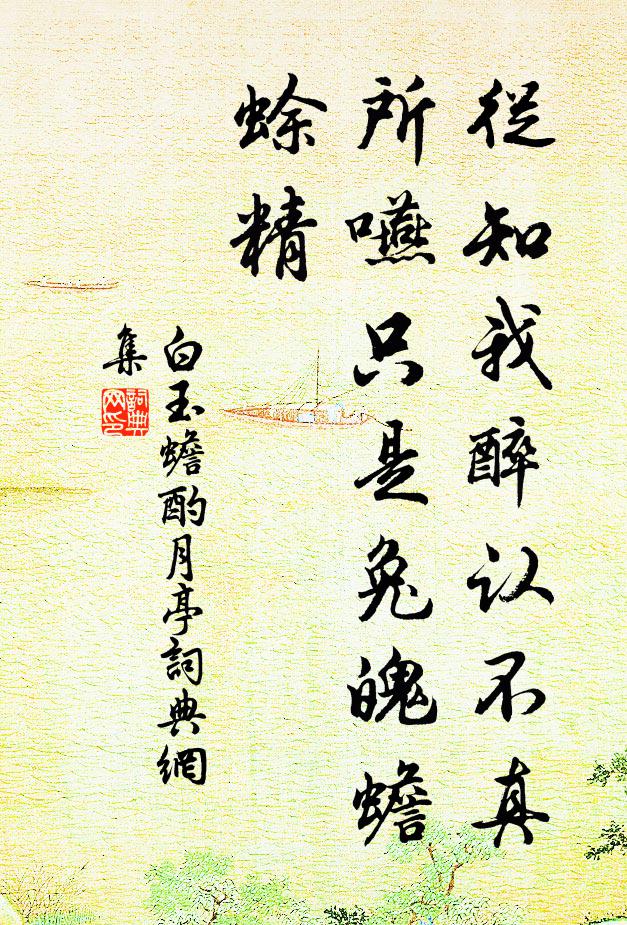 從知我醉认不真
所嚥只是兔魄蟾
蜍精
白玉蟾酌月亭詞典網
集
詞典
网印